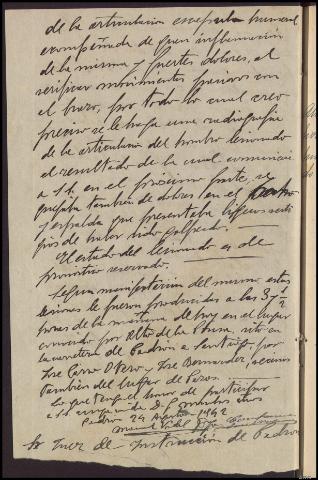 de la articulación escapulo humeral
acompañada de gran inflamación
de la misma y fuertes dolores, al
verificar movimientos pasivos con
el brazo, por todo lo cual creo
preciso se le haga una radiografia
de la articulacion del hombro lesionado
el resultado de la cual comunicaré
a S.S. en el proximo parte, se
quejaba tambien de dolores en el
y espalda que presentaba ligeros vesti
gios de haber sido golpeado.
El estado del lesionado es de
pronostico reservado.
Segun manifestacion del mismo estas
lesiones le fueron producidas a las 3 y ½
horas de la mañana de hoy en el lugar
conocido por Alto de la sito en
la carretera de Padrón a Santiago por
José Otero y José Fernandez, vecinos
tambien del lugar de
Lo que tengo el honor de participar
a S.S.
Padrón 24 Agosto 1942
Manuel Vidal
Sr Juez de Instrucción de Padrón